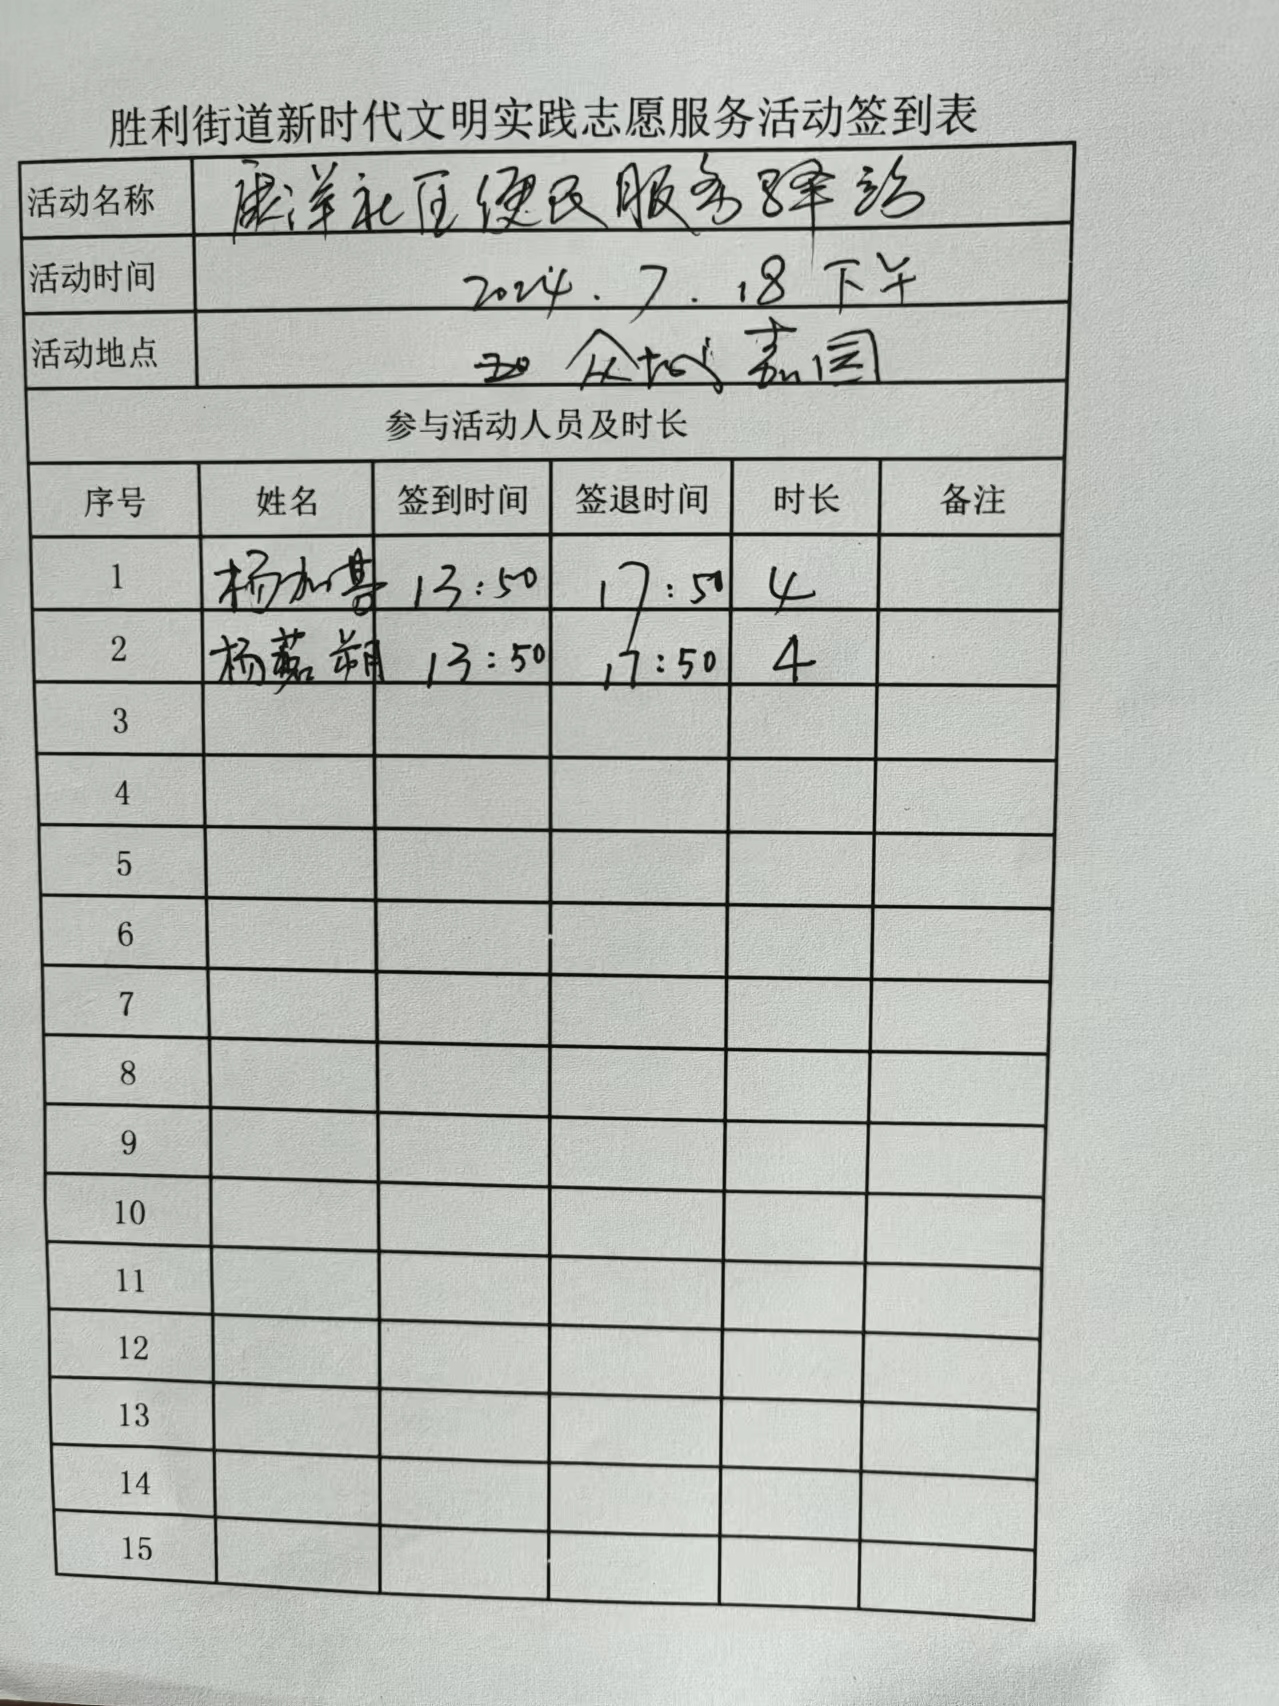 胜利街道新时代文明实践志愿服务活动签到表
活动名称 康洋社区便民服务驿站
活动时间 2024.7.18 下午
活动地点 众城嘉园
参与活动人员及时长
序号 姓名 签到时间 签退时间 时长 备注
1 杨加 13:50 17:50 4
2 杨茗朔 13:50 17:50 4
3
4
5
6
7
8
9
10
11
12
13
14
15